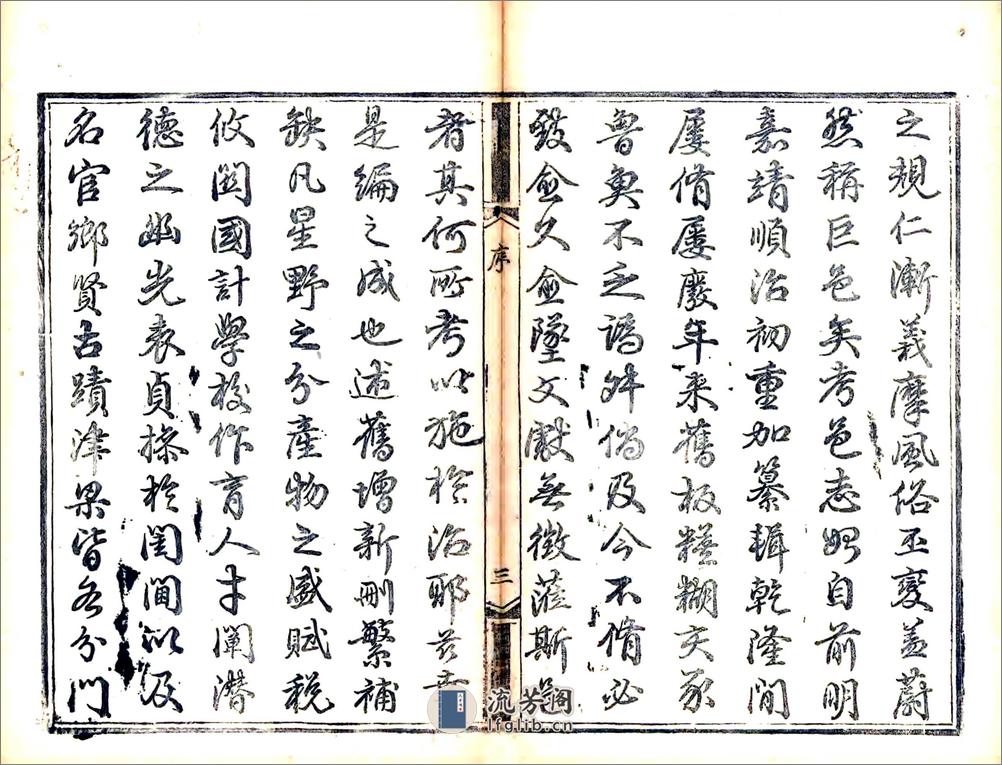 之規仁漸義摩風俗丕變蓋蔚
然稱巨邑矣考邑志昉自前明
嘉靖順治初重加纂輯乾隆間
屢脩屢廢年来舊板糢糊亥豕
魯魚不乏譌舛倘及今不脩必
致愈久愈墜文獻無徵蒞斯邑
者其何所考以施於治耶茲
是編之成也述舊增新刪繁補
缺凡星野之分產物之盛賦稅
攸關國計學校作育人才闡潛
德之幽光表貞操於閨閫以及
名宦鄉賢古蹟津梁皆各分門
序
三
流芳閣
lfglib.cn